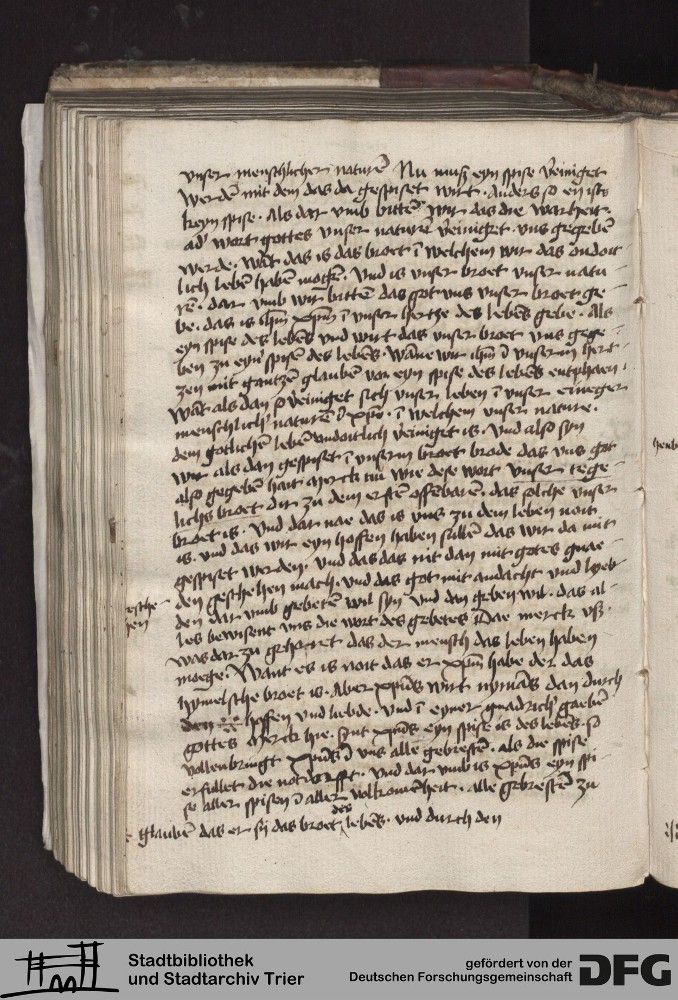 vnser menschlicher naturē Nu muiß eyn spise v̄einiget
werdē mit dem das da gespiset wirt. Anders so en ists
keyn spise. Als dar vmb bittē wir das die warheit.
ad' wort gottes vnser naturē v̄einiget. vns gegebē
werde. wāt das is das broet ī welchem wir das ondoit
lich lebē haben mogē. Vnd is vnser broet vnser natu
rē. dar vmb wir bittē das got vns vnser broet ge
be. das is ihm̄ xpm̄ ī vnser hertze des lebēs gebe. Als
eyn spise des lebēs vnd wirt das vnser broet vns gege
ben zu eyn' spisē des lebēs. Wāne wir ihm̄ ī vnserm hert
zen mit gantzē glauben vor eyn spise des lebēs entphaen.
Wāt als dan so v̄einiget sich vnser leben ī vnser eineger
menschlich' naturē ī xpo. ī welchem vnser nature.
dem gotlichē lebē vndoitlich v̄einiget is. Vnd also syn
wir als dan gespiset ī vnserm broet brode das vns got
also gegebē hait Merck nu wie dese wort vnser tege
lichs broet dir zu dem erstē offēbarē. das solche vnser
broet is. Vnd dar nae das is vns zu dem leben noit
is. vnd das wir eyn hoffen haben sullē das wir da mit
gespiset werden. vnd das das nit dan mit gotes gnae
den geschehen mach. vnd das got mit andacht vnd lyeb
den dar vmb gebetē wil syn vnd dan geben wil. das al
les bewisent vns die wort des gebetes Dae merck vß.
was dar zu gehoret das der mensch das leben haben
moege. Want es is noit das er xpm̄ habe der das
hymelsche broet is. Aber xpūs wirt nymās dan durch
den hoffen vnd liebde. vnd ī eyner gnadrich' gaebē
gottes Merck hie. Sint xpūs eyn spise is des lebēs. so
vollenbringt xpūs ī vns alle gebrestē. als die spise
erfullet die notdurfft. Vnd dar vmb is xpūs eyn spi
se aller spisen ī aller volkomēheit. alle gebrestē zu
glaubē das er sy das broet des lebēs. vnd durch den
Stadtbibliothek
und Stadtarchiv Trier
gefördert von der
Deutschen Forschungsgemeinschaft
DFG